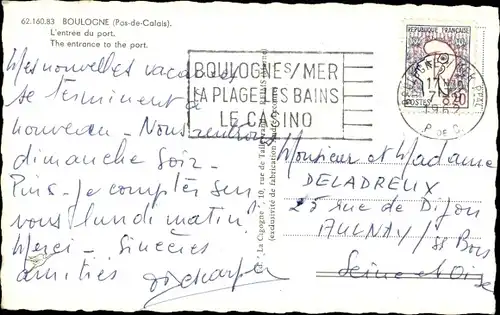 62.160.83 BOULOGNE (Pas-de-Calais).
L'entrée du port.
The entrance to the port.
Mes nouvelles vacances
se terminent à
nouveau - Nous rentrons
dimanche soir -
Puis-je compter sur
vous lundi matin?
Merci - Sincères
amitiés
BOULOGNE S/MER
LA PLAGE LES BAINS
LE CASINO
REPUBLIQUE FRANÇAISE
POSTES 0,20
P. DE C.
"La Cigogne", 10, rue de
(exclusivité de fabrication
Monsieur et Madame
DELADREUX
25 rue de Dijon
AULNAY / ss Bois
Seine et Oise